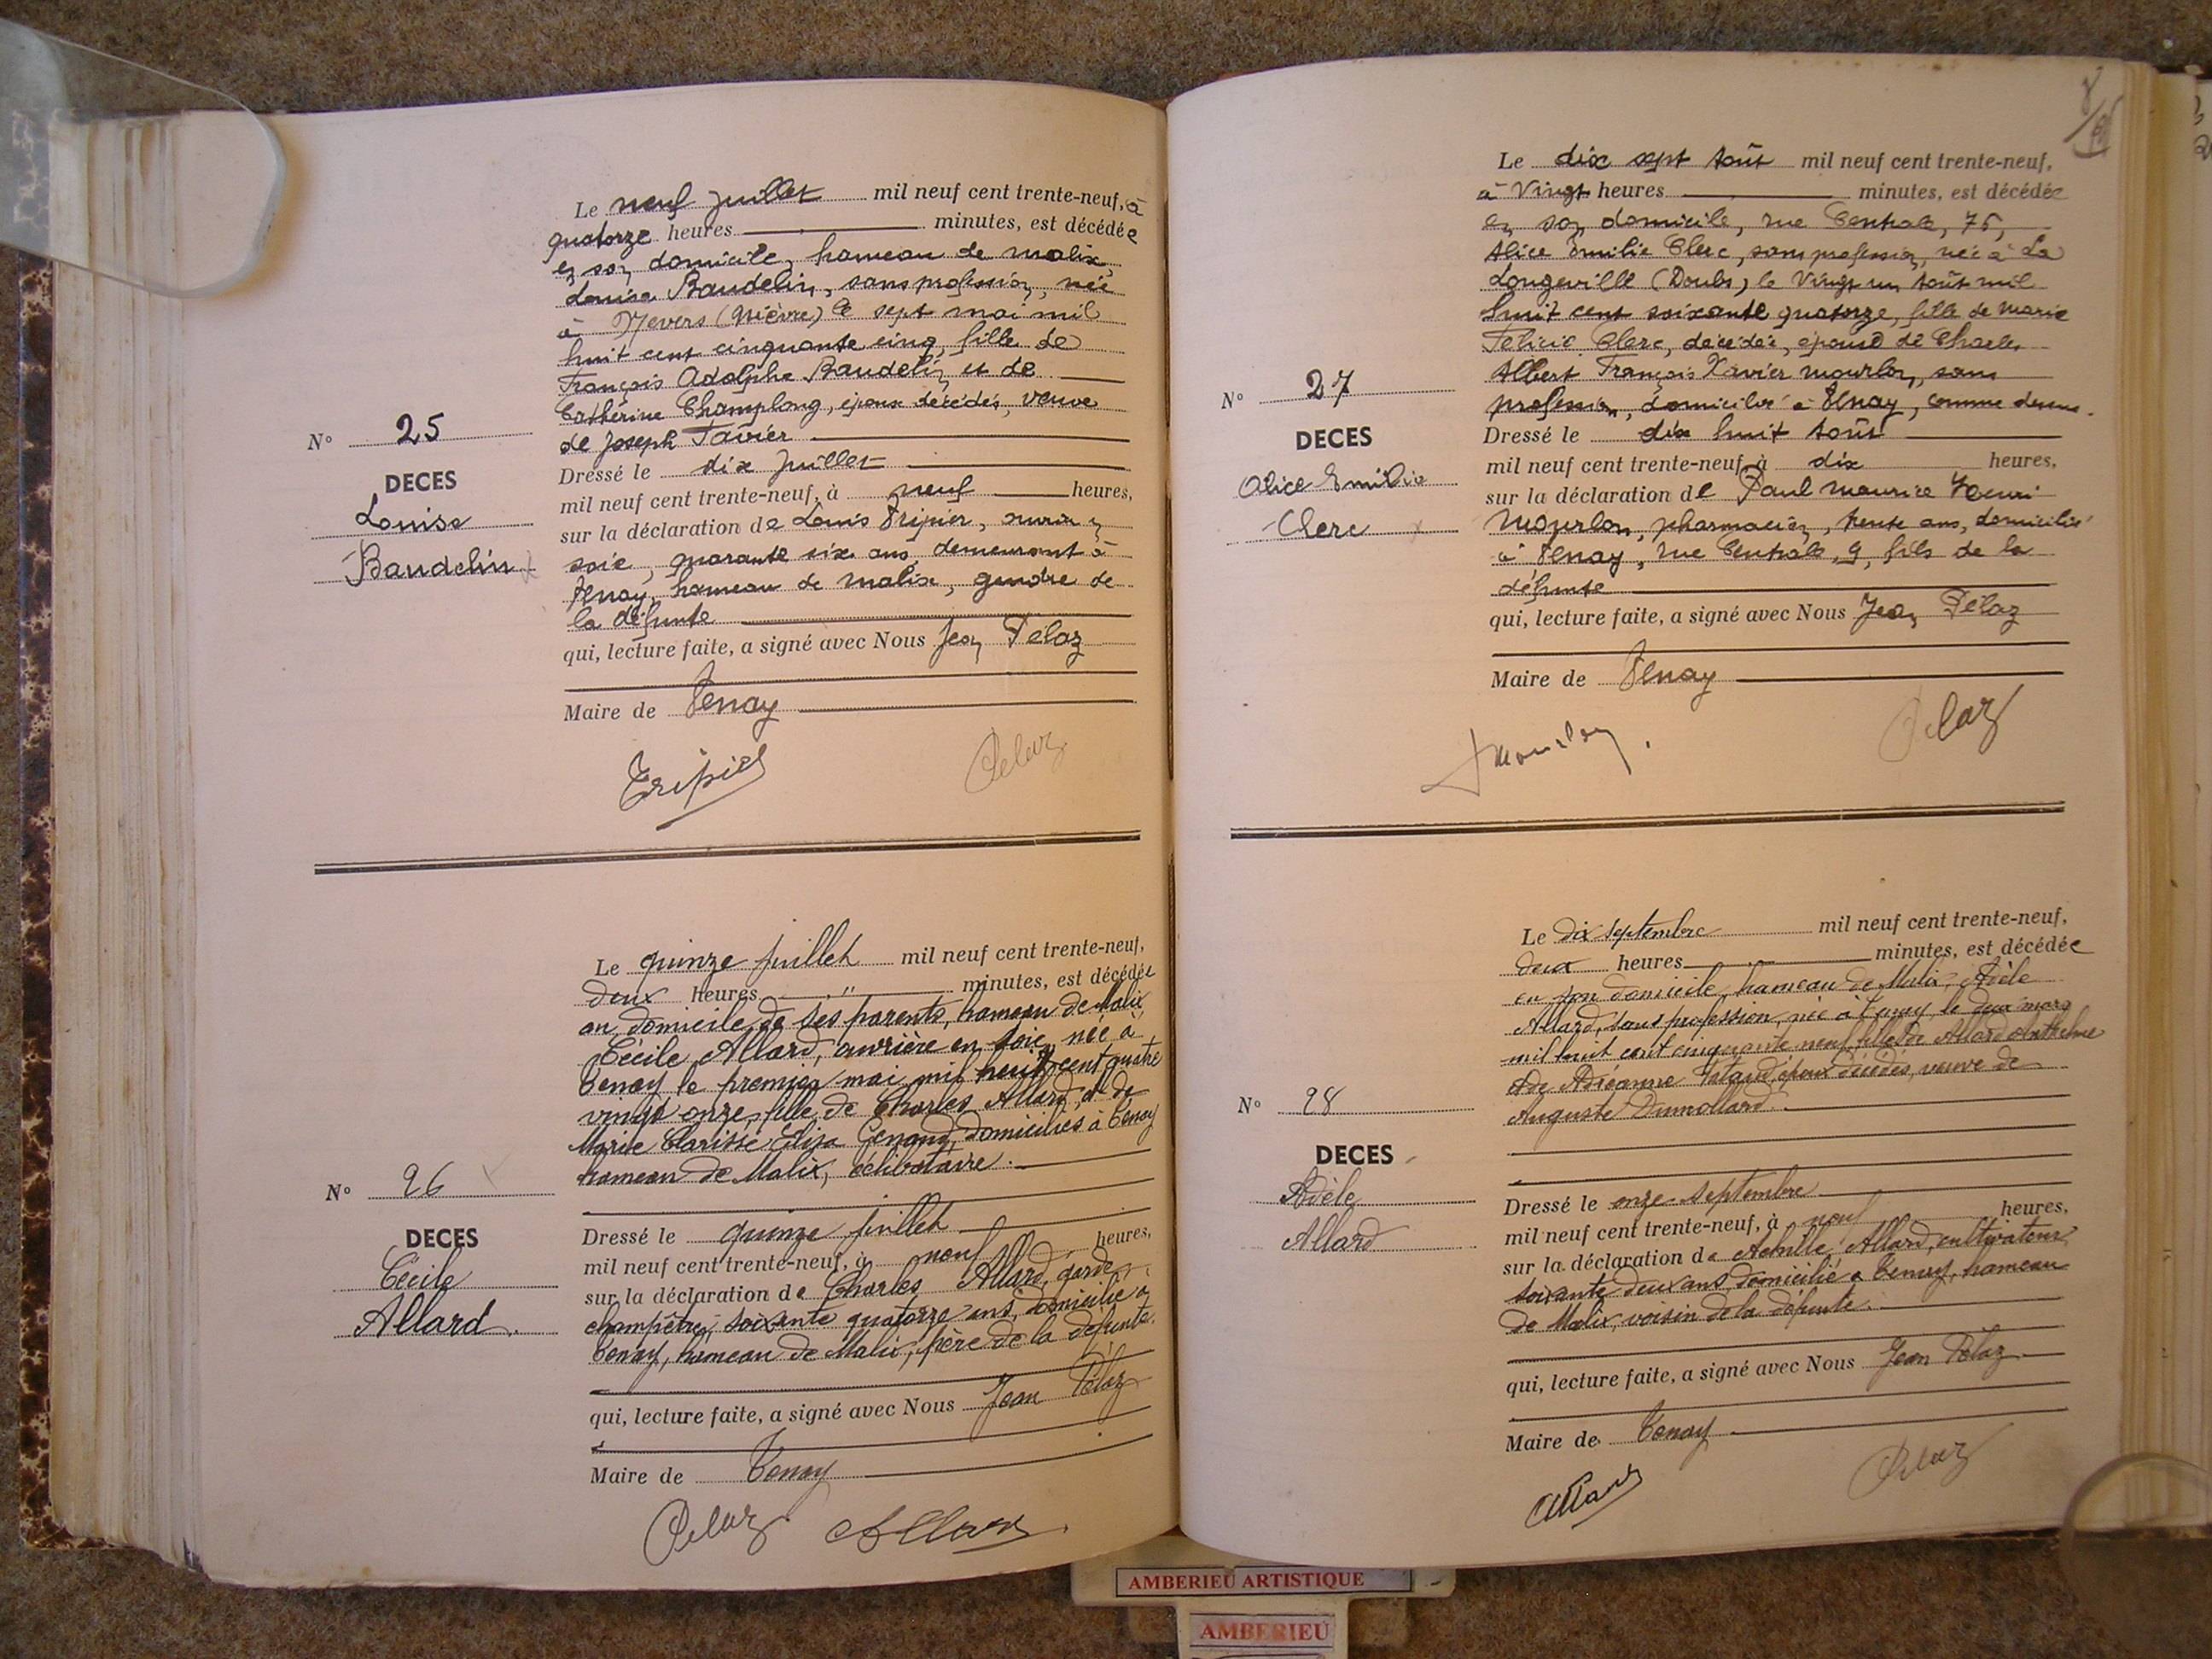 Le neuf juillet mil neuf cent trente-neuf, à
quatorze heures minutes, est décédée
en son domicile, hameau de Malix,
Louise Baudelin, sans profession, née
à Nevers (Nièvre) le sept mai mil
huit cent cinquante cinq, fille de
François Adolphe Baudelin et de
Cathérine Champlong, époux décédés, veuve
de Joseph Tavier
N° 25
DECES
Louise
Baudelin
Dressé le dix juillet
mil neuf cent trente-neuf, à neuf heures,
sur la déclaration de Louis Tripier, ouvrier en
soie, quarante six ans demeurant à
Tenay, hameau de Malix, gendre de
la défunte
qui, lecture faite, a signé avec Nous Jean Pélaz
Maire de Tenay
Tripier Pelaz
Le quinze juillet mil neuf cent trente-neuf,
deux heures " minutes, est décédée
au domicile de ses parents, hameau de Malix
Cécile Allard, ouvrière en soie, née à
Tenay le premier mai mil huit cent quatre
vingt onze, fille de Charles Allard, et de
Marie Clarisse Eliza domiciliés à Tenay
hameau de Malix, célibataire.
N° 26
DECES
Cécile
Allard
Dressé le quinze juillet
mil neuf cent trente-neuf, à neuf heures,
sur la déclaration de Charles Allard, garde
champêtre, soixante quatorze ans, domicilié à
Tenay, hameau de Malix, père de la défunte.
qui, lecture faite, a signé avec Nous Jean Pélaz
Maire de Tenay
Pelaz Allard
8
Le dix sept Août mil neuf cent trente-neuf,
à Vingt heures minutes, est décédée
en son domicile, rue Centrale, 75,
Alice Emilie Clerc, sans profession, née à La
Longeville (Doubs) le Vingt un Août mil
huit cent soixante quatorze, fille de Marie
Félicie Clerc, décédée, épouse de Charles
Albert François Xavier Mourlon, sans
profession, domicilié à Tenay, comme dessus.
N° 27
DECES
Alice Emilie
Clerc
Dressé le dix huit Août
mil neuf cent trente-neuf, à dix heures,
sur la déclaration de Paul Maurice Henri
Mourlon, pharmacien, trente ans, domicilié
à Tenay, rue Centrale, 9, fils de la
défunte
qui, lecture faite, a signé avec Nous Jean Pélaz
Maire de Tenay
Mourlon Pelaz
Le dix septembre mil neuf cent trente-neuf,
deux heures minutes, est décédée
en son domicile, hameau de Malix, Adèle
Allard, sans profession, née à Tenay le deux mars
mil huit cent cinquante neuf, fille de Allard Anthelme
et de époux décédés, veuve de
Auguste Dumollard.
N° 28
DECES
Adèle
Allard
Dressé le onze septembre
mil neuf cent trente-neuf, à neuf heures,
sur la déclaration de Achille Allard, cultivateur
soixante deux ans, domicilié à Tenay, hameau
de Malix, voisin de la défunte.
qui, lecture faite, a signé avec Nous Jean Pélaz
Maire de Tenay
Allard Pelaz
AMBERIEU ARTISTIQUE
AMBERIEU